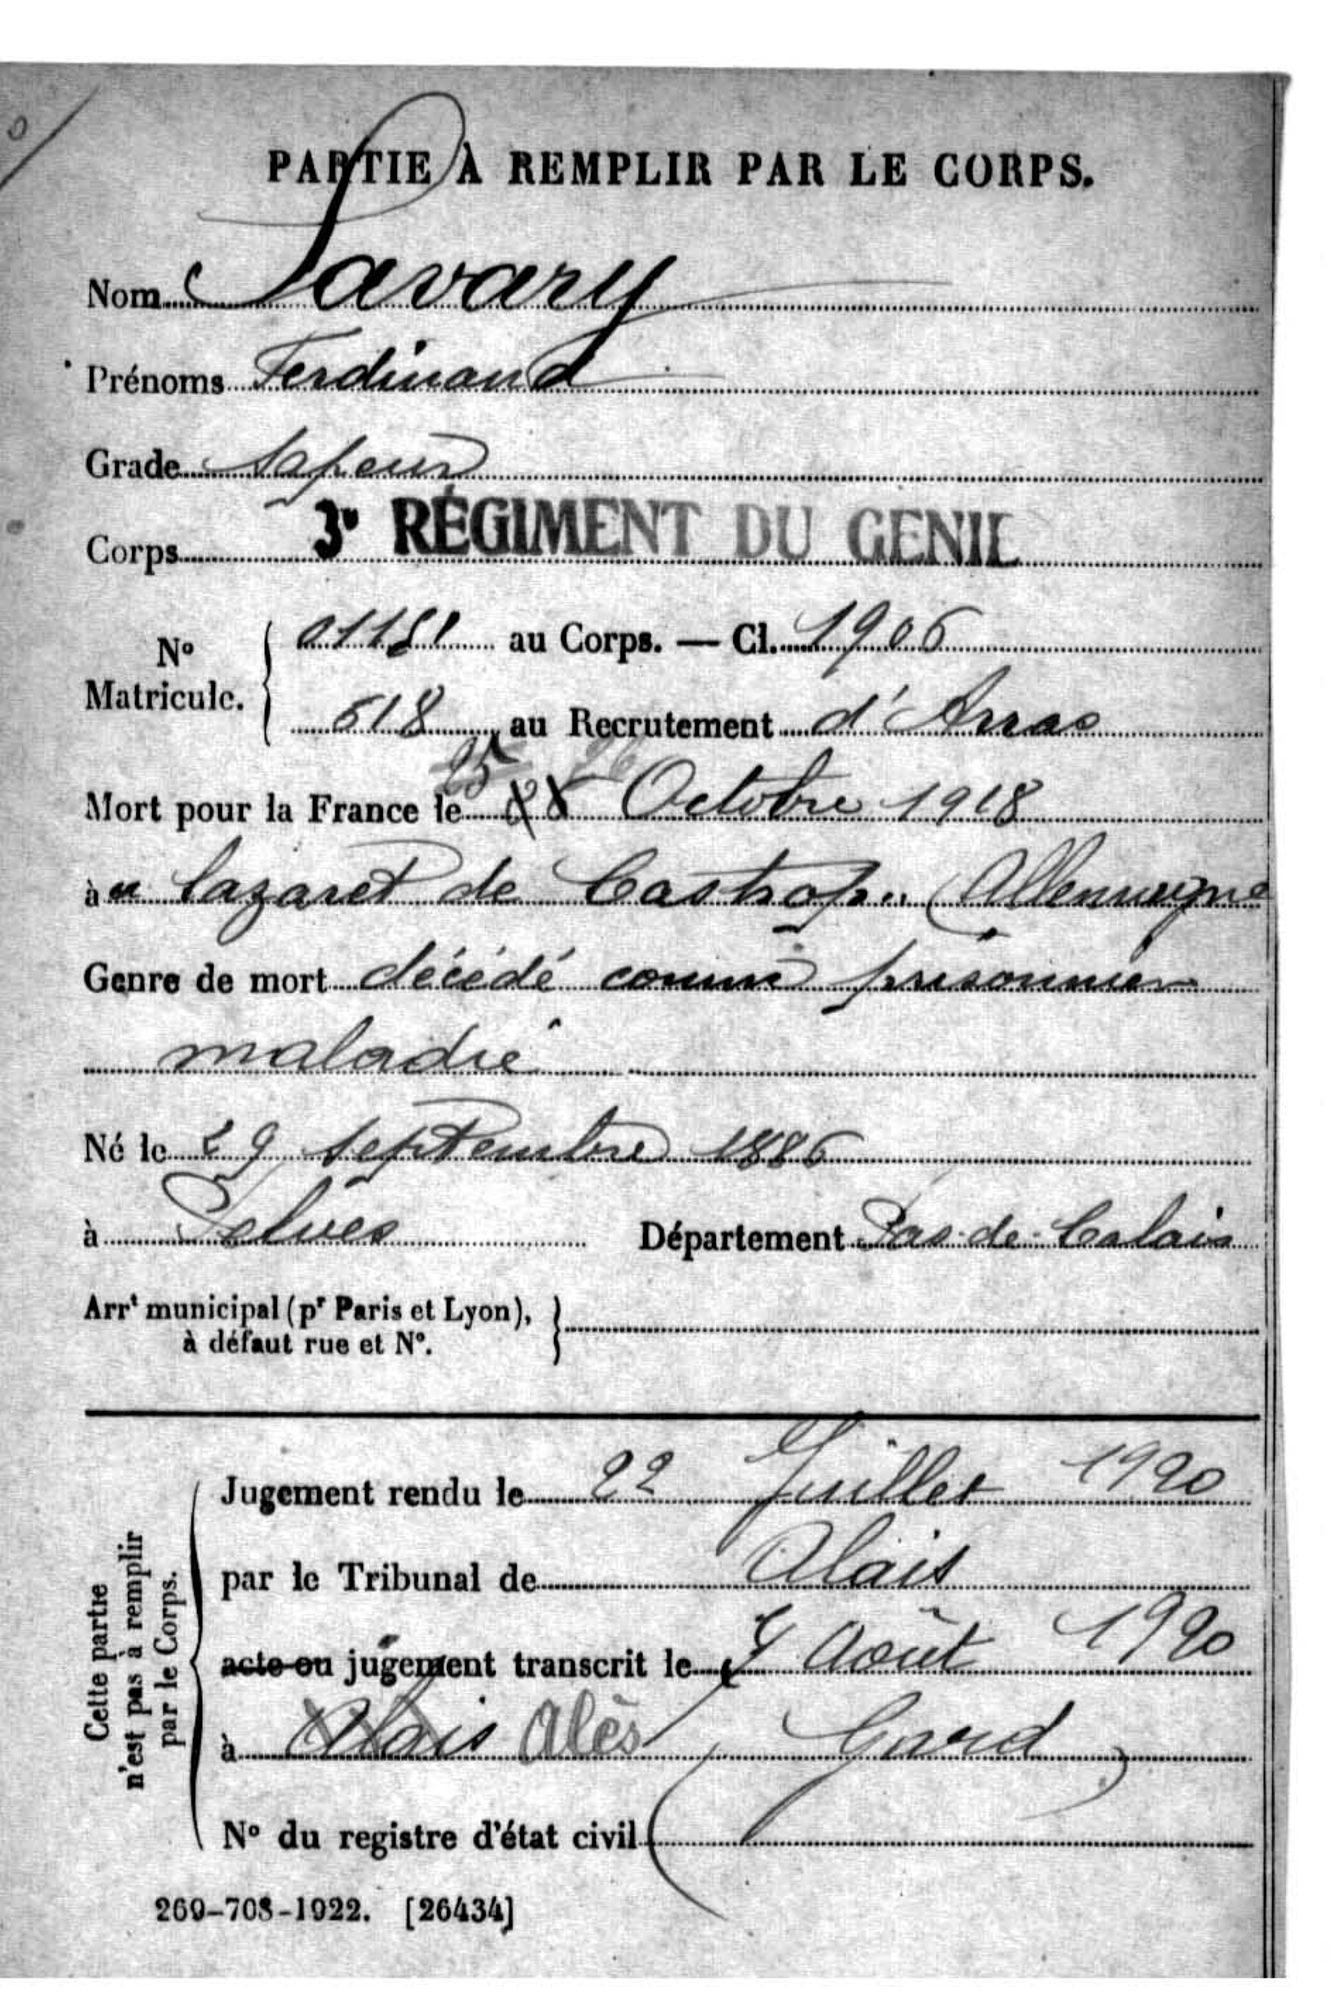 PARTIE À REMPLIR PAR LE CORPS.
Nom Savary
Prénoms Ferdinand
Grade Sapeur
Corps 3e RÉGIMENT DU GENIE
No Matricule. 01151 au Corps. — Cl. 1906
518 au Recrutement d'Arras
25 26
Mort pour la France le 28 Octobre 1918
à u lazaret de Castrop. (Allemagne
Genre de mort décédé comme prisonnier
maladie
Né le 29 septembre 1886
à Pelves Département Pas-de-Calais
Arrt municipal (pr Paris et Lyon),
à défaut rue et No.
Cette partie
n'est pas à remplir
par le Corps.
Jugement rendu le 22 Juillet 1920
par le Tribunal de Alais
acte ou jugement transcrit le Août 1920
à Alais Alès (Gard)
No du registre d'état civil
269-708-1922. [26434]